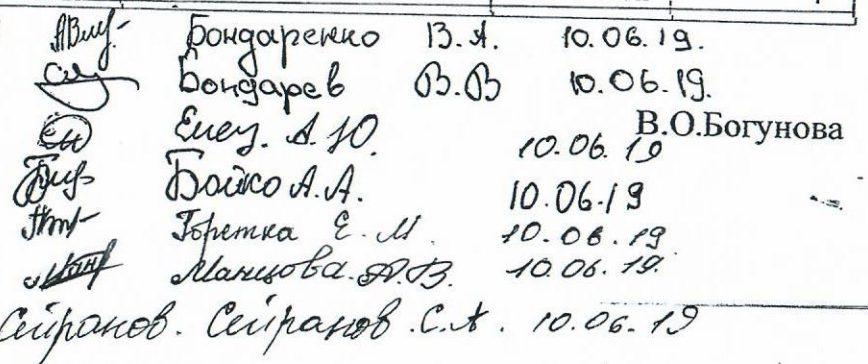 Бондаренко В.А. 10.06.19.
Бондарев В.В 10.06.19.
В.О.Богунова
Елец. А.Ю. 10.06.19
Бойко А.А. 10.06.19
Горетка Е.М. 10.06.19
Манцова.А.В. 10.06.19.
Сейранов. Сейранов.С.А. 10.06.19